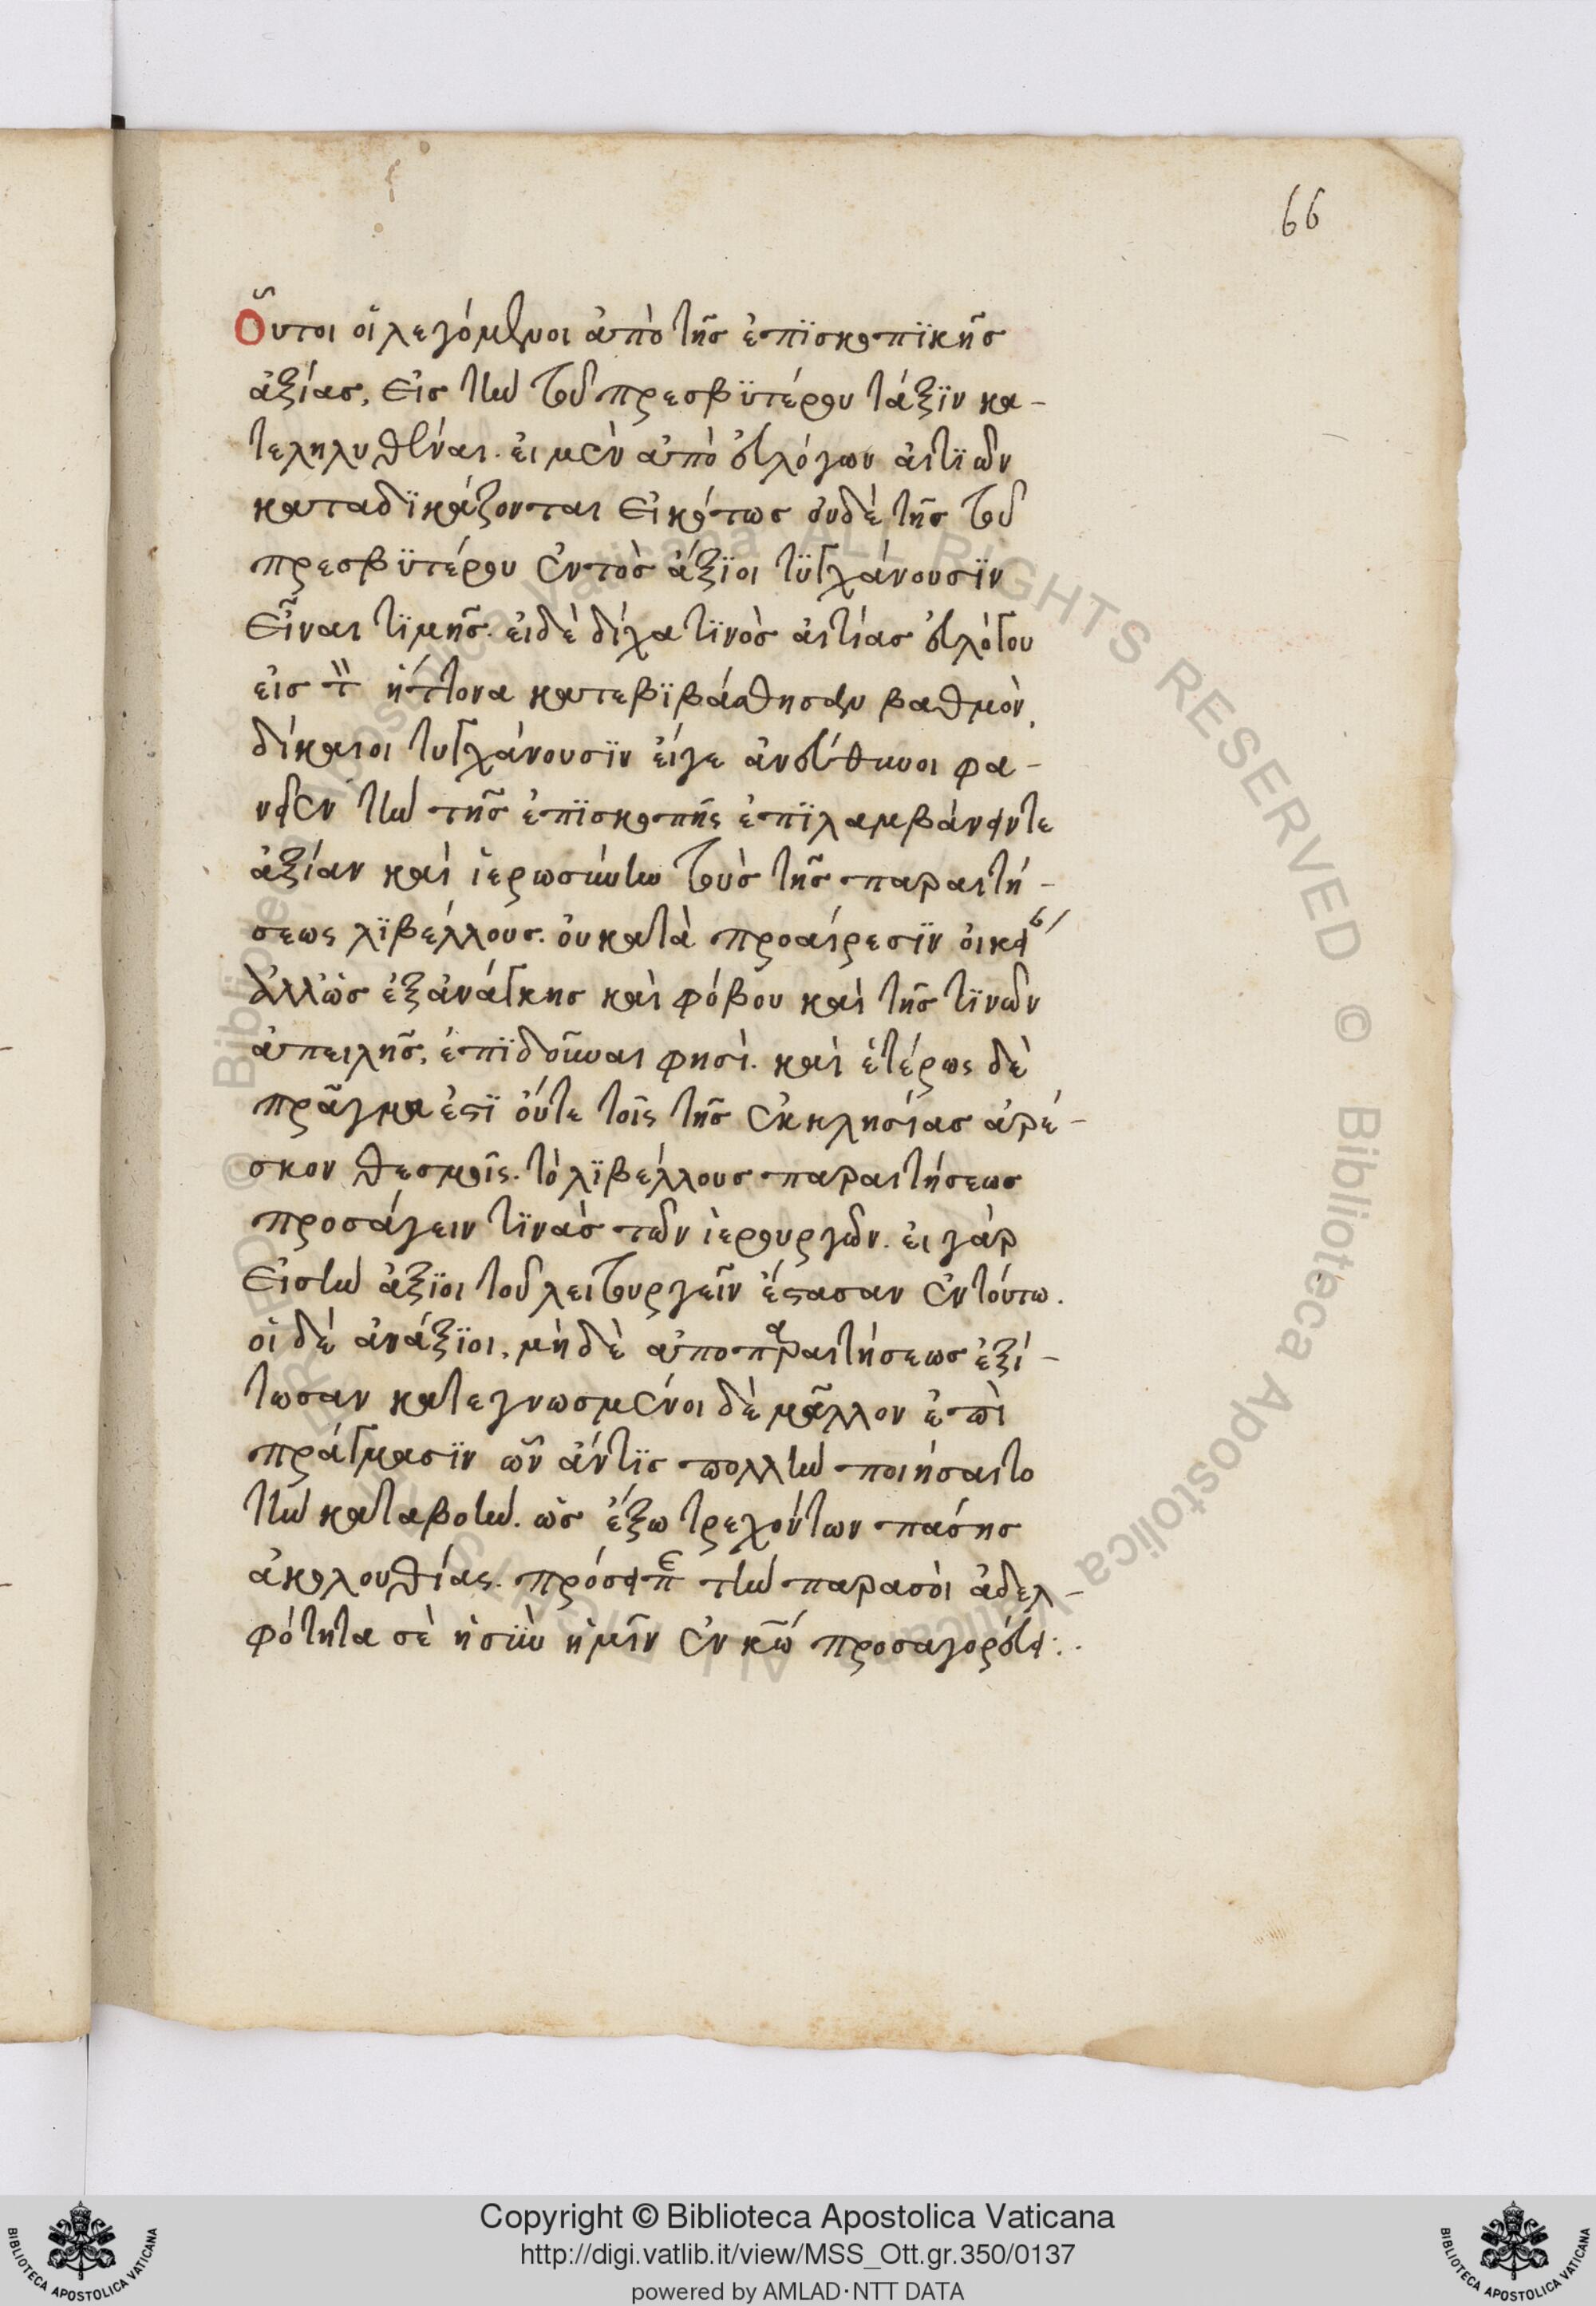 66
Οὗτοι οἱ λεγόμενοι ἀπὸ τῆς ἐπϊσκοπϊκῆς
ἀξίας, εἰς τὴν τοῦ πρεσβϋτέρου τάξϊν κα-
τεληλυθέναι. εἰ μὲν ἀπὸ εὐλόγων αἰτϊῶν
καταδϊκάζονται εἰκότως οὐδὲ τῆς τοῦ
πρεσβϋτέρου ἐντὸς ἄξϊοι τϋγχάνουσϊν
εἶναι τϊμῆς. εἰ δὲ δίχα τϊνὸς αἰτίας εὐλόγου
εἰς τ̈ ἥττονα κατεβϊβάσθησαν βαθμὸν,
δίκαιοι τυγχάνουσϊν εἴγε ἀνεύθυνοι φα-
νεῖεν τὴν τῆς ἐπϊσκοπῆς ἐπϊλαμβάνοντε
ἀξίαν καὶ ἱερωσύνην τοὺς τῆς παραιτή-
σεως λϊβέλλους. οὐ κατὰ προαίρεσϊν οἰκεί
ἀλλ' ὡς ἐξ ἀνάγκης καὶ φόβου καὶ τῆς τϊνῶν
ἀπειλῆς, ἐπϊδοῦναι φησὶ. καὶ ἑτέρως δὲ
πρᾶγμα ἐστϊ οὔτε τοῖς τῆς ἐκκλησίας ἀρέ-
σκον θεσμοῖς. τὸ λϊβέλλους παραιτήσεως
προσάγειν τϊνὰς τῶν ἱερουργῶν. εἰ γὰρ
εἰσὶν ἄξϊοι τοῦ λειτουργεῖν ἔστασαν ἐν τούτω.
οἱ δὲ ἀνάξϊοι, μὴ δὲ ἀπο παραιτήσεως ἐξί-
τωσαν κατεγνωσμένοι δὲ μᾶλλον ἐπὶ
πράγμασϊν ὧν ἄν τϊς πολλὴν ποιήσαιτο
τὴν καταβοήν. ὡς ἔξω τρεχόντων πάσης
ἀκολουθίας. πρόσειπε τὴν παρα σοὶ ἀδελ-
φότητα σὲ ἡ σὺν ἡμῖν ἐν κ̅ω̅ προσαγορεύει:.
Copyright © Biblioteca Apostolica Vaticana
http://digi.vatlib.it/view/MSS_Ott.gr.350/0137
powered by AMLAD·NTT DATA